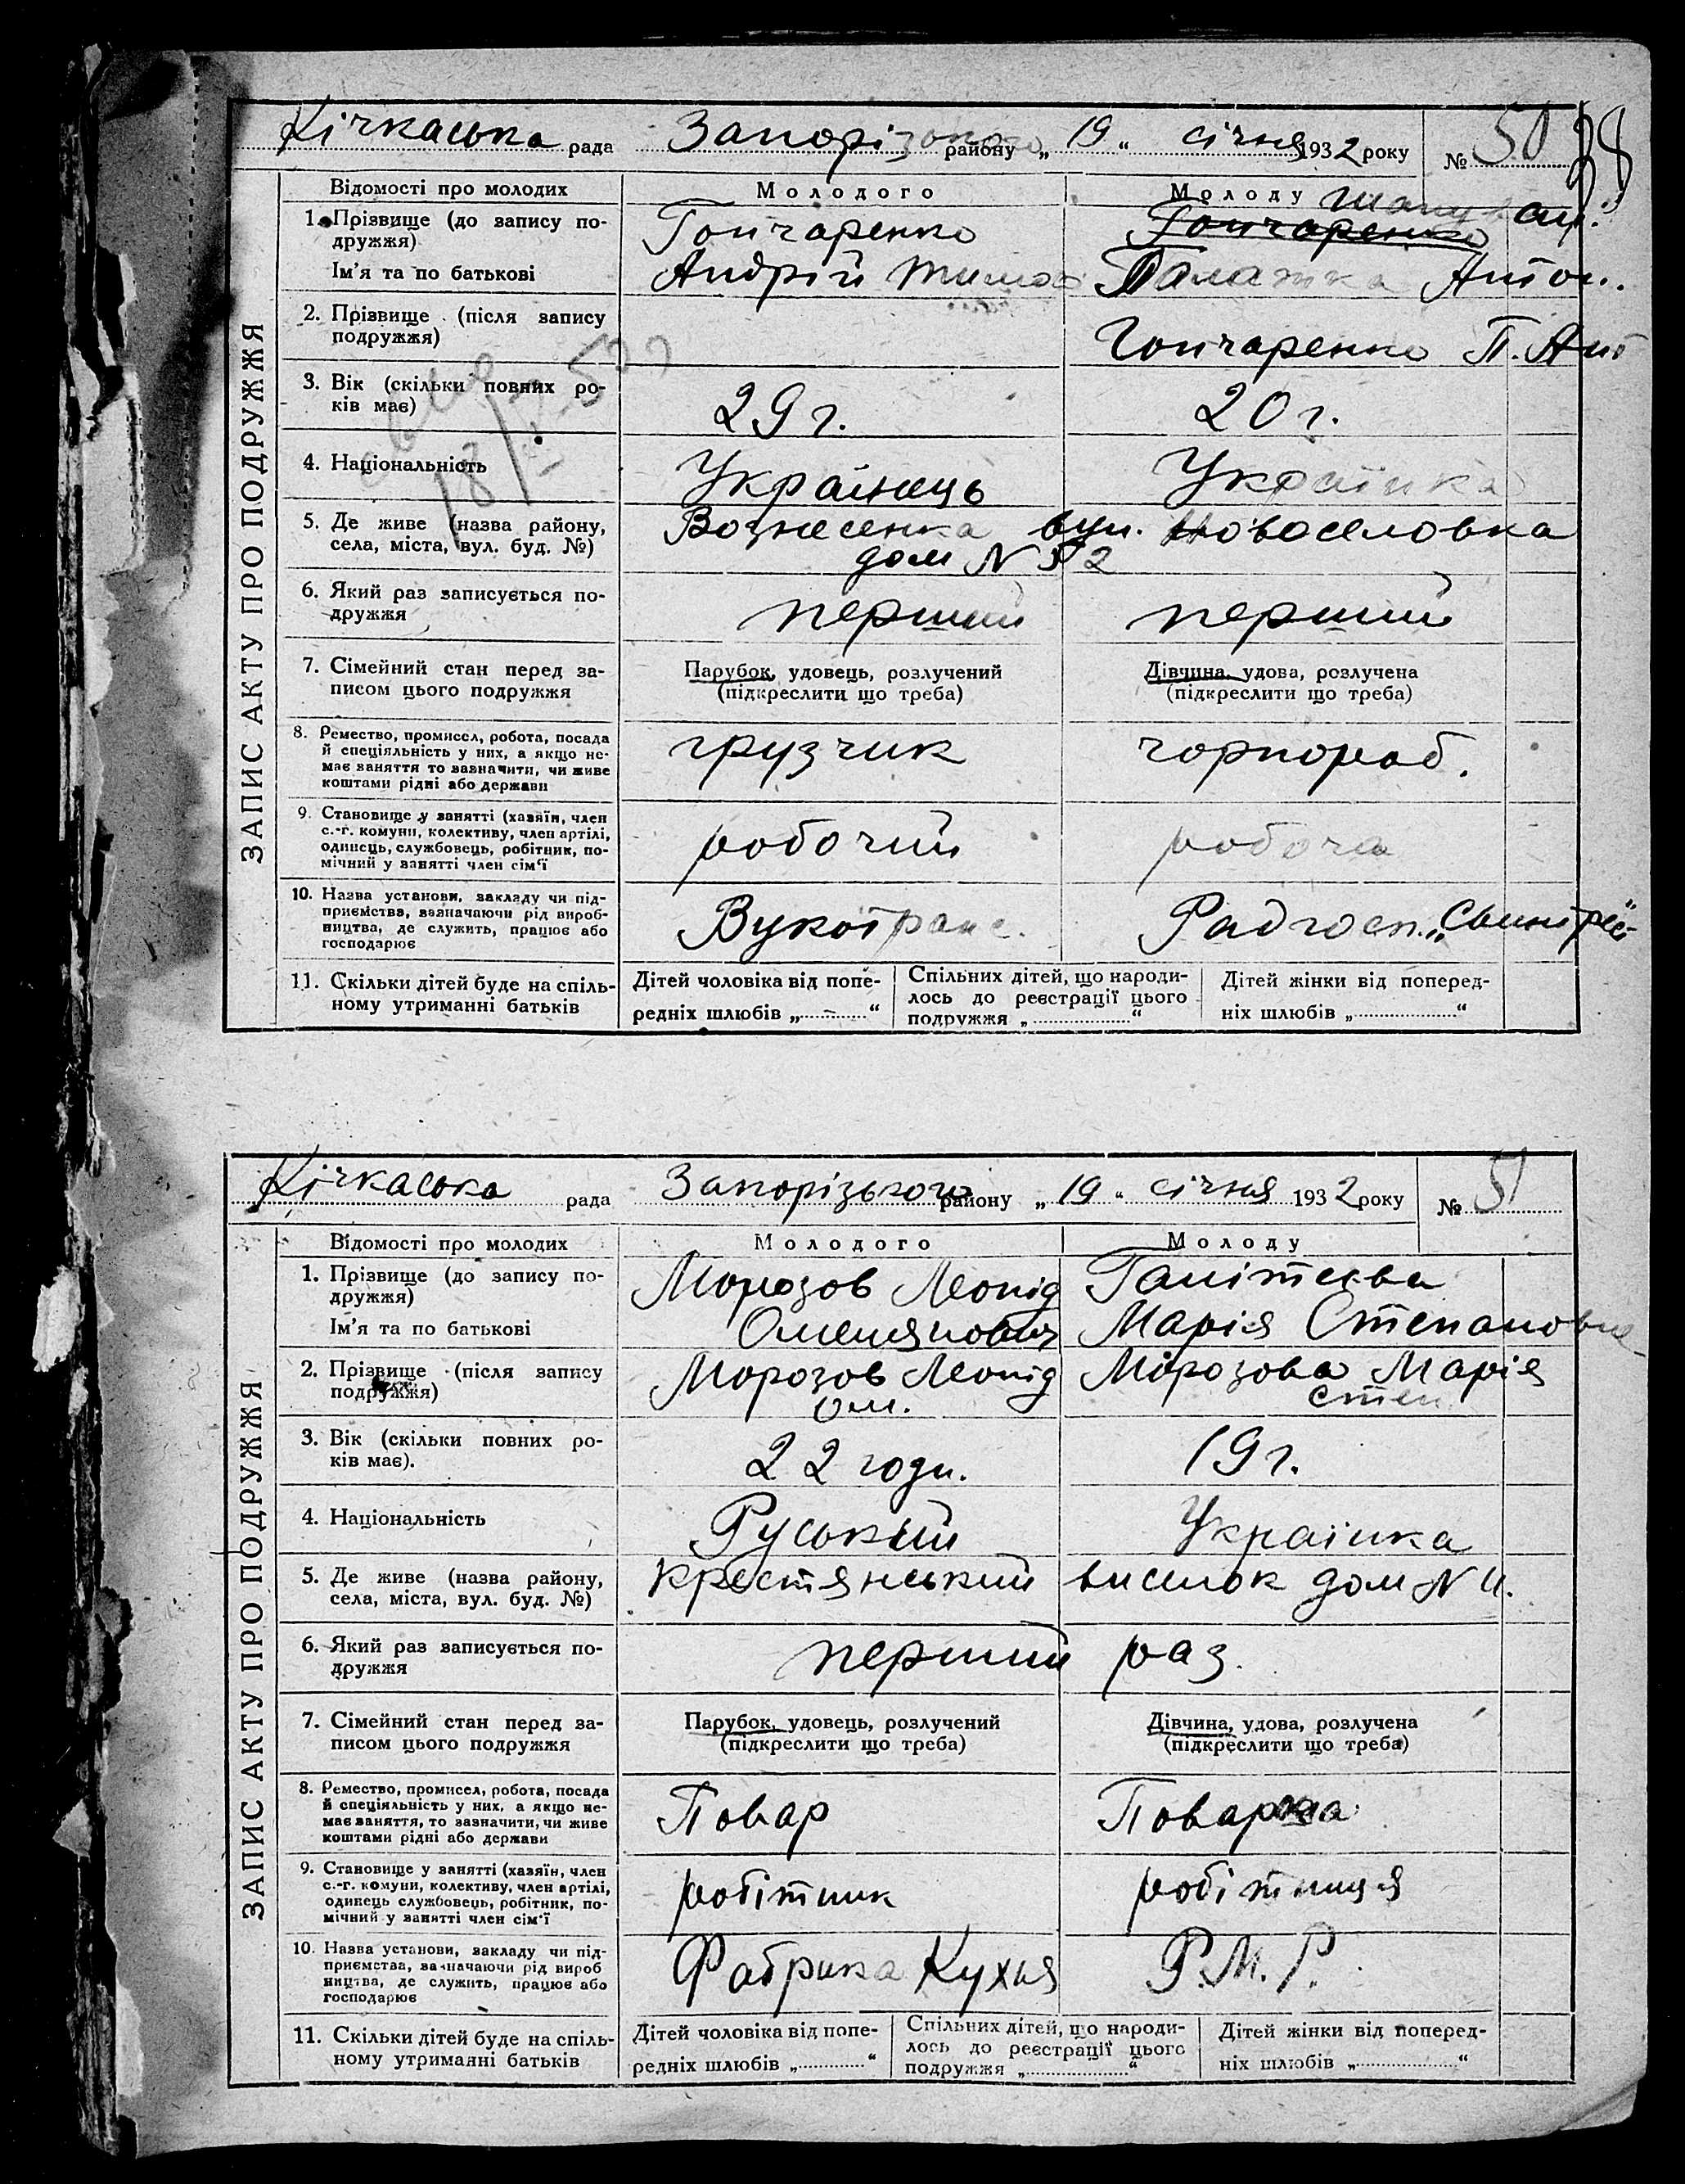 38
Кічкаська рада Запорізького району „ 19 “ січня 1932 року № 50
ЗАПИС АКТУ ПРО ПОДРУЖЖЯ
Відомості про молодих Молодого Молоду
1. Прізвище (до запису по-
дружжя) Гончаренко Гончаренко
Ім'я та по батькові Андрій Тимоф Палажка Антон.
2. Прізвище (після запису
подружжя) Гончаренко П. Ант
3. Вік (скільки повних ро-
ків має) 29 г. 20 г.
4. Національність Українець Українка
5. Де живе (назва району, Вознесенка вул. Новоселовка
села, міста, вул. буд. №) дом N 52
6. Який раз записується по-
дружжя перший перший
7. Сімейний стан перед за- Парубок, удовець, розлучений Дівчина, удова, розлучена
писом цього подружжя (підкреслити що треба) (підкреслити що треба)
8. Ремество, промисел, робота, посада
й спеціяльність у них, а якщо не- грузчик чорнороб.
має заняття то зазначити, чи живе
коштами рідні або держави
9. Становище у занятті (хазяїн, член
с.-г. комуни, колективу, член артілі,
одинець, службовець, робітник, по- робочий робоча
мічний у занятті член сім'ї
10. Назва установи, закладу чи під-
приємства, зазначаючи рід вироб- Вукотранс. Радгосп.
ництва, де служить, працює або
господарює
11. Скільки дітей буде на спіль-
ному утриманні батьків
Дітей чоловіка від попе-
редніх шлюбів „ - “
Спільних дітей, що народи-
лось до реєстрації цього
подружжя „ “
Дітей жінки від поперед-
ніх шлюбів „ “
Кічкаська рада Запорізького району „ 19 “ січня 1932 року № 51
ЗАПИС АКТУ ПРО ПОДРУЖЖЯ
Відомості про молодих Молодого Молоду
1. Прізвище (до запису по- Морозов Леонід
дружжя)
Ім'я та по батькові Омелянович Марія Степановна
2. Прізвище (після запису Морозов Леонід Морозова Марія
подружжя) Ом. Степ
3. Вік (скільки повних ро-
ків має). 22 годи. 19 г.
4. Національність Руський Українка
5. Де живе (назва району, Крестянський виселок дом N 11.
села, міста, вул. буд. №)
6. Який раз записується по- перший раз.
дружжя
7. Сімейний стан перед за- Парубок, удовець, розлучений Дівчина, удова, розлучена
писом цього подружжя (підкреслити що треба) (підкреслити що треба)
8. Ремество, промисел, робота, посада
й спеціяльність у них, а якщо не- Повар Поварка
має заняття, то зазначити, чи живе
коштами рідні або держави
9. Становище у занятті (хазяїн, член
с.-г. комуни, колективу, член артілі, робітник робітниця
одинець службовець, робітник, по-
мічний у занятті член сім'ї
10. Назва установи, закладу чи під-
приємства, зазначаючи рід вироб Фабрика Кухня Р.М.Р.
ництва, де служить, працює або
господарює
11. Скільки дітей буде на спіль-
ному утриманні батьків
Дітей чоловіка від попе-
редніх шлюбів „ “
Спільних дітей, що народи-
лось до реєстрації цього
подружжя „ “
Дітей жінки від поперед-
ніх шлюбів „ “